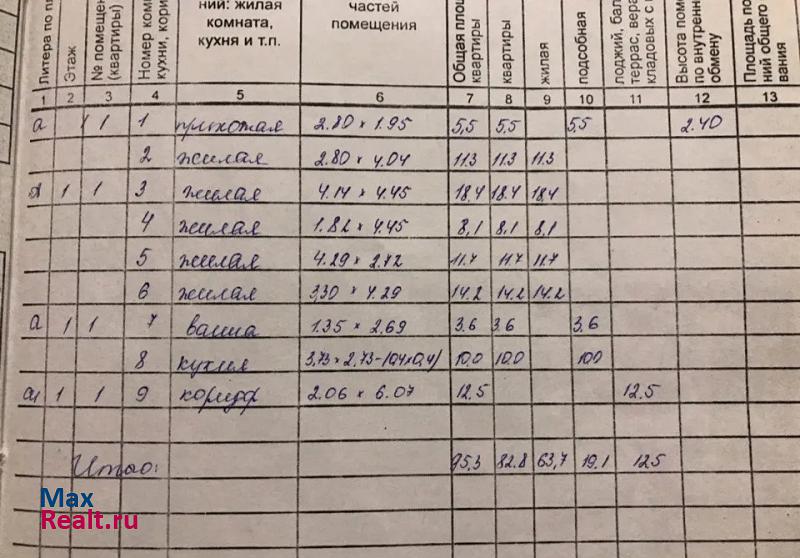 Литера по пл
Этаж
№ помещен
(квартиры)
Номер комн
кухни, кори
ний: жилая
комната,
кухня и т.п.
частей
помещения
Общая площ
квартиры
квартиры
жилая
подсобная
лоджий, бал
террас, вера
кладовых с к
Высота поме
по внутренн
обмену
Площадь по
ний общего
вания
1 2 3 4 5 6 7 8 9 10 11 12 13
а 1 1 прихожая 2.80 × 1.95 5,5 5,5 5,5 2.40
2 жилая 2.80 × 4.04 11.3 11.3 11.3
А 1 1 3 жилая 4.14 × 4.45 18.4 18.4 18.4
4 жилая 1.82 × 4.45 8,1 8,1 8,1
5 жилая 4.29 × 2.72 11.7 11.7 11.7
6 жилая 3,30 × 4.29 14.2 14.2 14.2
а 1 1 7 ванна 1.35 × 2.69 3.6 3.6 3,6
8 кухня 3,73 × 2,73-(0,4×0,4) 10,0 10,0 10,0
а1 1 1 9 коридор 2.06 × 6.07 12.5 12.5
Итого: 95,3 82.8 63,7 19,1 12.5
Max
Realt.ru